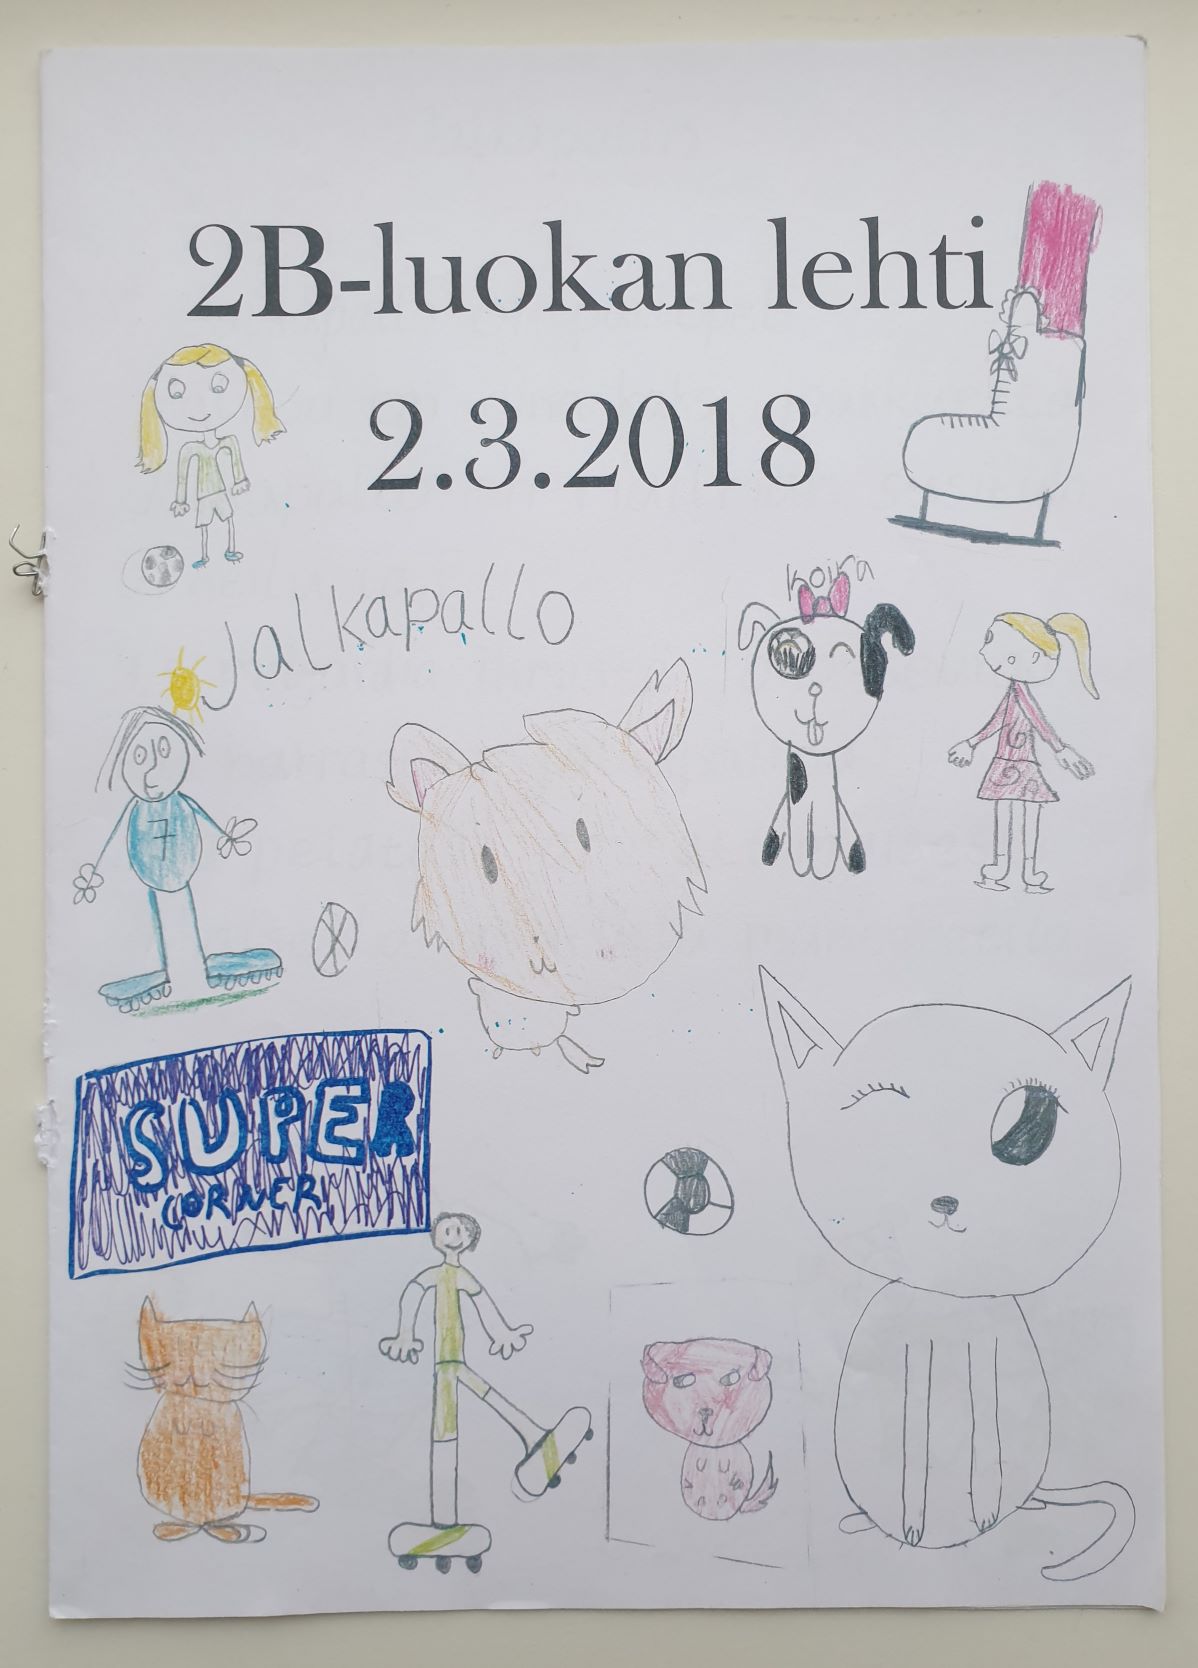 2B-luokan lehti
2.3.2018
Jalkapallo
koira
7
SUPER
CORNER